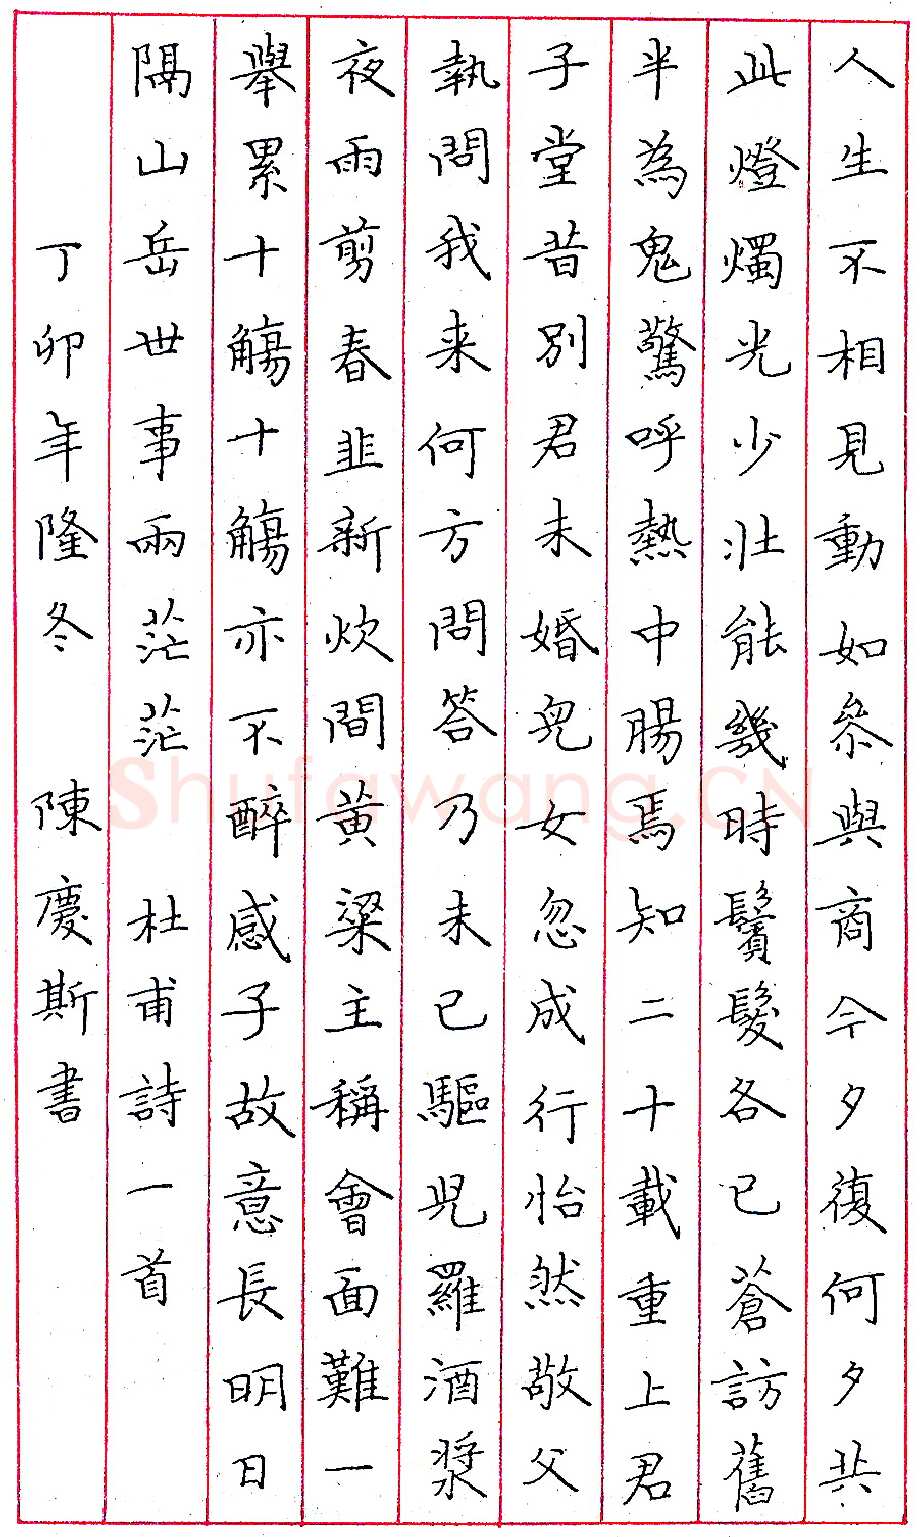 人生不相見動如參與商今夕復何夕共
此燈燭光少壯能幾時鬢髮各已蒼訪舊
半為鬼驚呼熱中腸焉知二十載重上君
子堂昔別君未婚兒女忽成行怡然敬父
執問我来何方問答乃未已驅児羅酒漿
夜雨剪春韭新炊間黃粱主稱會面難一
舉累十觴十觴亦不醉感子故意長明日
隔山岳世事兩茫茫 杜甫詩一首
丁卯年隆冬 陳慶斯書
Shufawang.CN